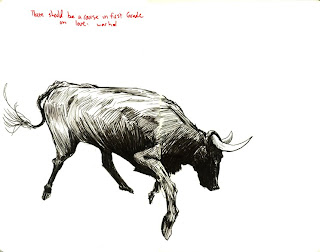 There should be a course in first Grade
on love. Warhol